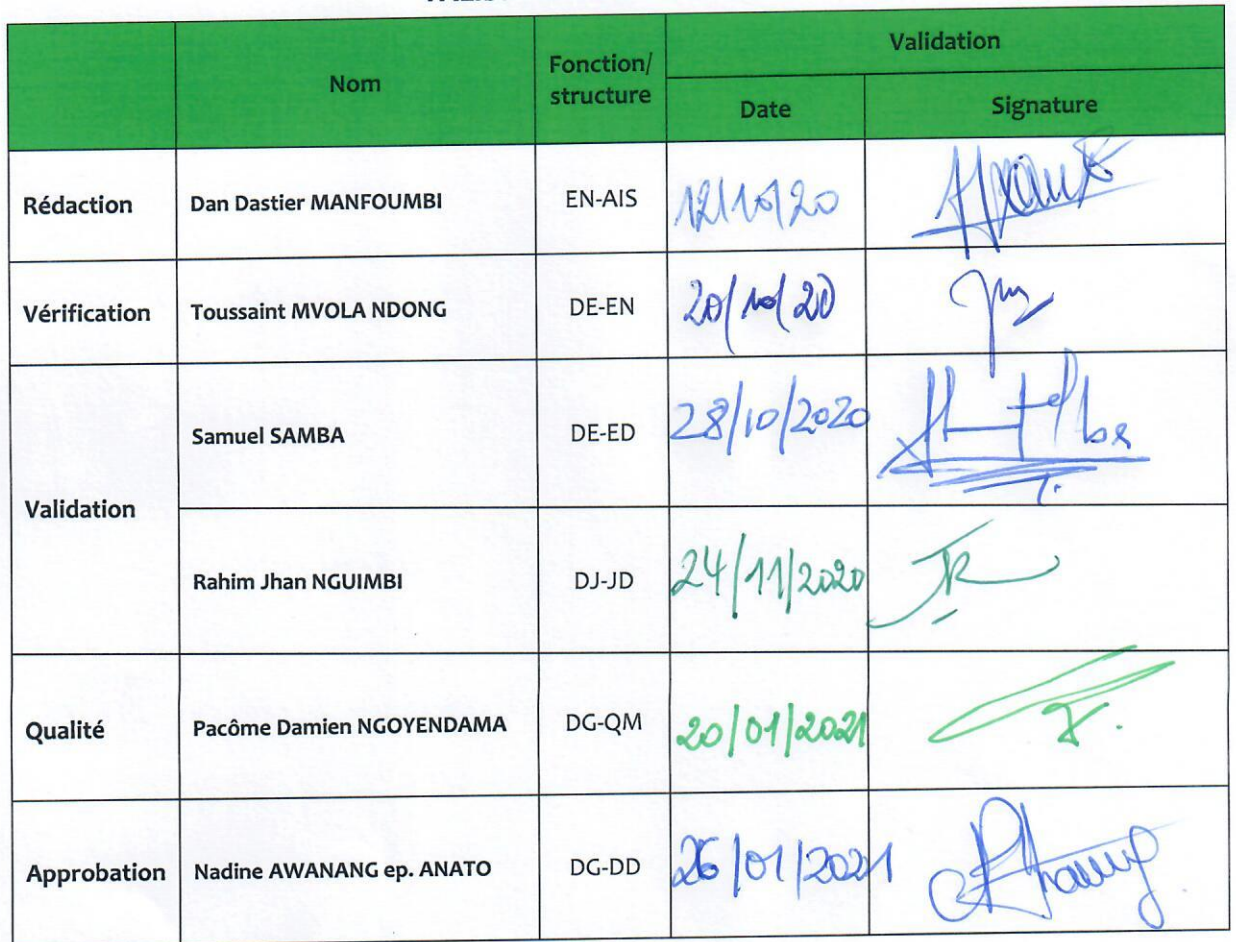 Nom
Fonction/
structure
Validation
Date
Signature
Rédaction
Dan Dastier MANFOUMBI
EN-AIS
12/10/20
Vérification
Toussaint MVOLA NDONG
DE-EN
20/10/20
Validation
Samuel SAMBA
DE-ED
28/10/2020
Rahim Jhan NGUIMBI
DJ-JD
24/11/2020
Qualité
Pacôme Damien NGOYENDAMA
DG-QM
20/01/2021
Approbation
Nadine AWANANG ep. ANATO
DG-DD
26/01/2021